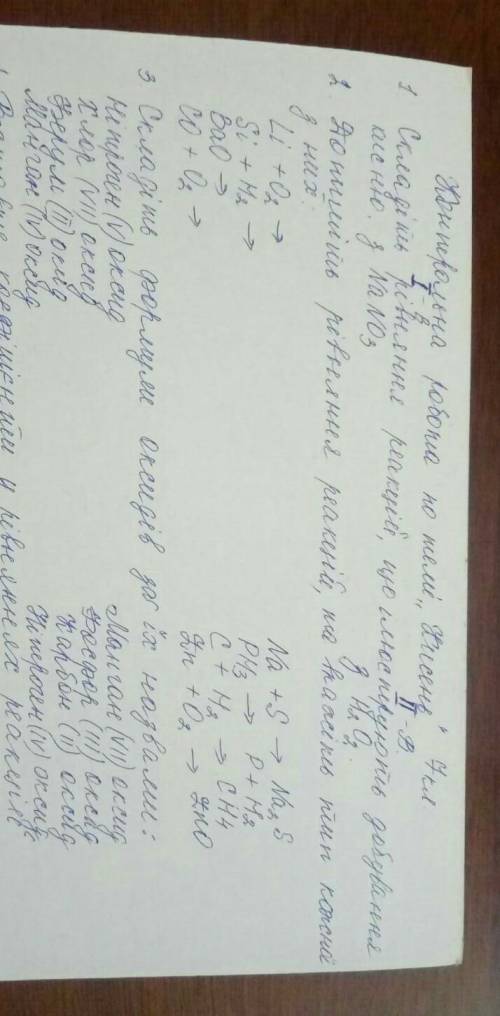 Контрольна робота по темі „Кисень“ 7 кл
I в II в
1. Складіть рівняння реакцій, що ілюструють добування
кисню. з NaNO3 з H2O2
2. Допишіть рівняння реакцій, та вкажіть тип кожної
з них:
Li + O2 → Na + S → Na2S
Si + H2 → PH3 → P + H2
BaO → C + H2 → CH4
CO + O2 → Zn + O2 → ZnO
3 Складіть формули оксидів за їх назвами:
Нітроген (V) оксид Манган (VII) оксид
Хлор (VII) оксид Фосфор (III) оксид
Ферум (II) оксид Карбон (II) оксид
Манган (IV) оксид Нітроген (IV) оксид
коефіцієнти у рівняннях реакцій